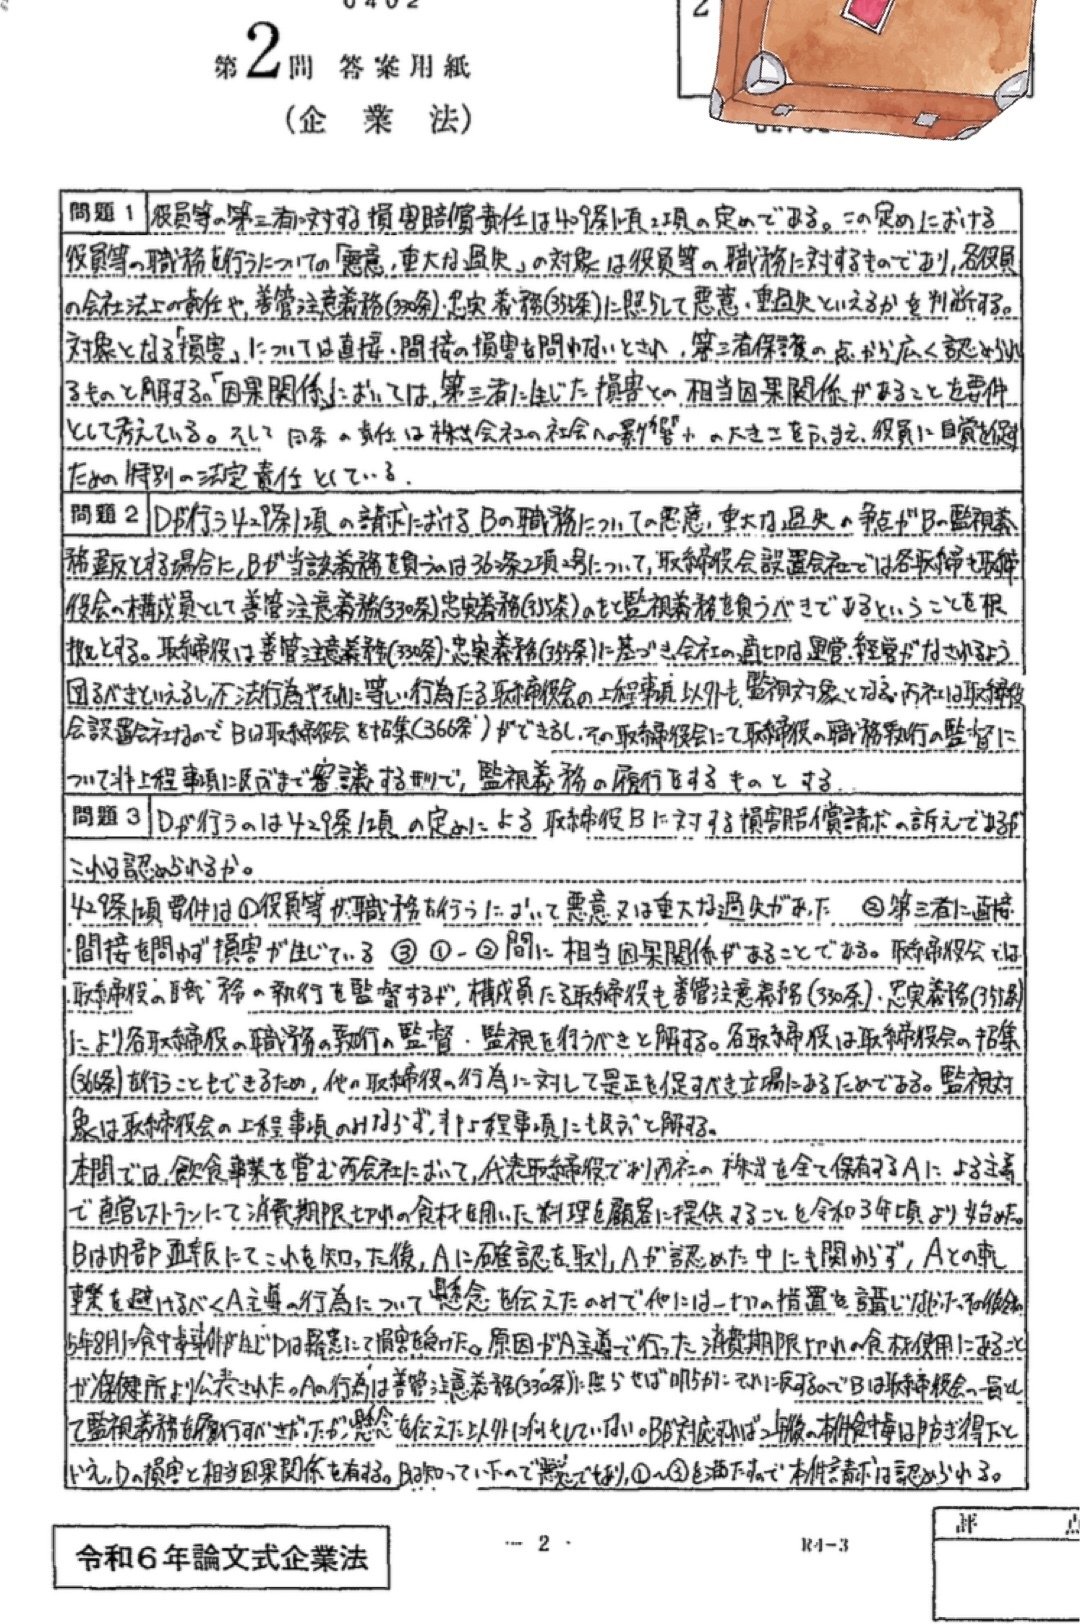 0402
第2問 答案用紙
(企業法)
2
問題1 役員等の第三者に対する損害賠償責任は429条1項2項の定めである。この定めにおける
役員等の職務を行うについての「悪意・重大な過失」の対象は役員等の職務に対するものであり,各役員
の会社法上の責任や,善管注意義務(330条)・忠実義務(355条)に照らして悪意・重過失といえるかを判断する。
対象となる「損害」については直接・間接の損害を問わないとされ,第三者保護の点から広く認められ
るものと解する。「因果関係」においては,第三者に生じた損害との相当因果関係があることを要件
として考えている。そして同条の責任は株式会社の社会への影響力の大きさをふまえ,役員に自覚を促す
ための特別の法定責任としている.
問題2 Dが行う429条1項の請求におけるBの職務についての悪意,重大な過失の争点がBの監視義
務違反とする場合に,Bが当該義務を負うのは362条2項2号について,取締役会設置会社では各取締も取締
役会の構成員として善管注意義務(330条)忠実義務(355条)のもと監視義務を負うべきであるということを根
拠とする。取締役は善管注意義務(330条)・忠実義務(355条)に基づき会社の適切な運営・経営がなされるよう
図るべきといえるし,不法行為やそれに等しい行為たる取締役会の上程事項以外も,監視対象となる。丙社は取締役
会設置会社なのでBは取締役会を招集(366条)ができるし,その取締役会にて取締役の職務執行の監督に
ついて非上程事項に及ぶまで審議する形で,監視義務の履行をするものとする
問題3 Dが行うのは429条1項の定めによる取締役Bに対する損害賠償請求の訴えであるが
これは認められるか。
429条1項要件は①役員等が職務を行うにおいて悪意又は重大な過失があった ②第三者に直接
・間接を問わず損害が生じている ③①-②間に相当因果関係があることである。取締役会では
取締役の職務の執行を監督するが,構成員たる取締役も善管注意義務(330条)・忠実義務(355条)
により各取締役の職務の執行の監督・監視を行うべきと解する。各取締役は取締役会の招集
(366条)を行うこともできるため,他の取締役の行為に対して是正を促すべき立場にあるためである。監視対
象は取締役会の上程事項のみならず,非上程事項にも及ぶと解する。
本問では,飲食事業を営む丙会社において,代表取締役であり丙社の株式を全て保有するAによる主導
で直営レストランにて消費期限切れの食材を用いた料理を顧客に提供することを令和3年頃より始めた。
Bは内部通報にてこれを知った後,Aに確認を取り,Aが認めた中にも関わらず,Aとの軋
轢を避けるべくA主導の行為について懸念を伝えたのみで他には一切の措置を講じなかった。その後令和
5年8月に食中毒事件が生じDは罹患にて損害を受けた。原因がA主導で行った消費期限切れの食材使用にあること
が保健所より公表された。Aの行為は善管注意義務(330条)に照らせば明らかにそれに反するのでBは取締役会の一員とし
て監視義務を履行すべきだったが,懸念を伝えた以外に何もしていない。Bが対応すれば2年後の本件食中毒は防ぎ得たと
いえ,Dの損害と相当因果関係を有する。Bは知っていたので悪意であり,①~③を満たすので本件請求は認められる。
- 2 -
R4-3
評 点
令和6年論文式企業法